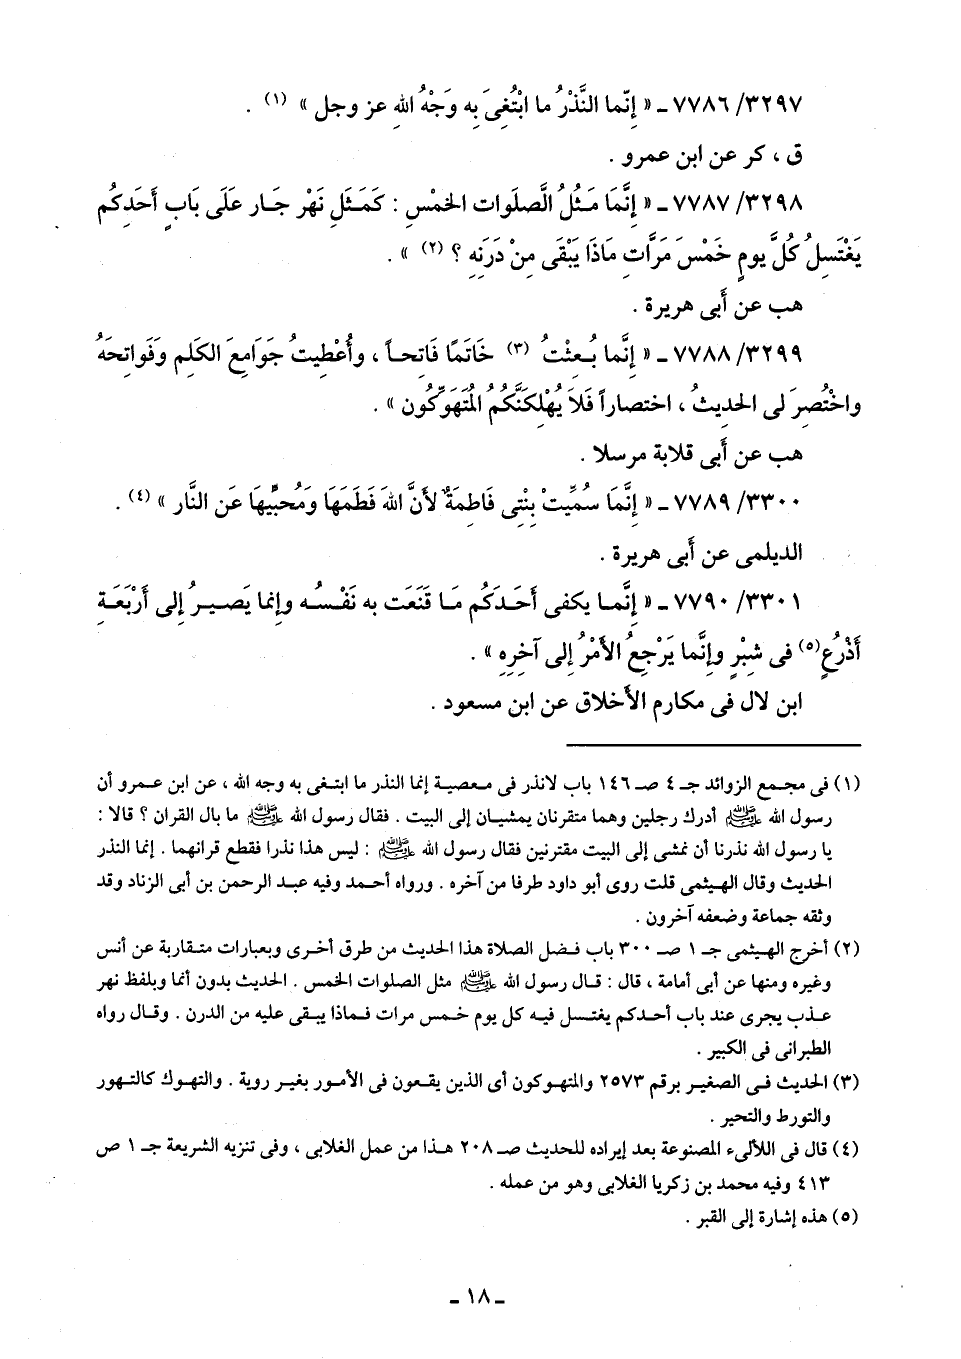 ٣٢٩٧/ ٧٧٨٦ ـ « إِنَّما النَّذْرُ ما ابْتُغِىَ بِه وَجْهُ اللهِ عز وجل » (١) .
ق ، كر عن ابن عمرو .
٣٢٩٨/ ٧٧٨٧ ـ « إِنَّمَا مَثُلُ الصَّلَوات الخمْسِ : كَمَثَلِ نَهْر جَار عَلَى بَابٍ أَحَدِكُم
يَغْتَسِلُ كُلَّ يومٍ خَمْسَ مَرَّاتِ مَاذَا يَبْقَى مِنْ دَرَنِهِ ؟ (٢) » .
هب عن أَبى هريرة .
٣٢٩٩/ ٧٧٨٨ ـ « إِنَّما بُعثْتُ (٣) خَاتَمًا فَاتِحاً ، وأُعْطِيتُ جَوَامِعَ الكَلِم وَفَواتِحَهُ
واخْتُصِرَ لى الحديثُ ، اختصاراً فَلاَ يُهْلِكَنَّكُمُ المُتَهَوِّكُون » .
هب عن أَبى قلابة مرسلا .
٣٣٠٠/ ٧٧٨٩ ـ « إِنَّمَا سُمِّيَتْ بِنْتِى فَاطِمَةٌ لأَنَّ اللهَ فَطَمَهَا وَمُحبِّيهَا عَن النَّار » (٤) .
الديلمى عن أَبى هريرة .
٣٣٠١/ ٧٧٩٠ ـ « إِنَّمـا يكفى أَحَـدَكُم مَـا قَنَعَت به نَفْـسُـه وإِنما يَصـيـرُ إِلى أَرْبَعَـةِ
أَذْرُعٍ(٥) فى شِبْرٍ وإِنَّما يَرْجِعُ الأَمْرُ إِلى آخِرِهِ » .
ابن لال فى مكارم الأَخلاق عن ابن مسعود .
(١) فى مجمع الزوائد جـ ٤ صـ ١٤٦ باب لانذر فى معصية إنما النذر ما ابتغى به وجه الله ، عن ابن عمرو أن
رسول الله ﷺ أدرك رجلين وهما متقرنان يمشيان إلى البيت . فقال رسول الله ﷺ ما بال القران ؟ قالا :
يا رسول الله نذرنا أن نمشى إلى البيت مقترنين فقال رسول الله ﷺ : ليس هذا نذرا فقطع قرانهما . إنما النذر
الحديث وقال الهيثمى قلت روى أبو داود طرفا من آخره . ورواه أحمد وفيه عبد الرحمن بن أبى الزناد وقد
وثقه جماعة وضعفه آخرون .
(٢) أخرج الهيثمى جـ ١ صـ ٣٠٠ باب فضل الصلاة هذا الحديث من طرق أخرى وبعبارات متقاربة عن أنس
وغيره ومنها عن أبى أمامة ، قال : قال رسول الله ﷺ مثل الصلوات الخمس . الحديث بدون أنما وبلفظ نهر
عذب يجرى عند باب أحدكم يغتسل فيه كل يوم خمس مرات فماذا يبقى عليه من الدرن . وقال رواه
الطبرانى فى الكبير .
(٣) الحديث فى الصغير برقم ٢٥٧٣ والمتهوكون أى الذين يقعون فى الأمور بغير روية . والتهوك كالتهور
والتورط والتحير .
(٤) قال فى اللآلىء المصنوعة بعد إيراده للحديث صـ ٢٠٨ هذا من عمل الغلابى ، وفى تنزيه الشريعة جـ ١ ص
٤١٣ وفيه محمد بن زكريا الغلابى وهو من عمله .
(٥) هذه إشارة إلى القبر .
ـ ١٨ ـ